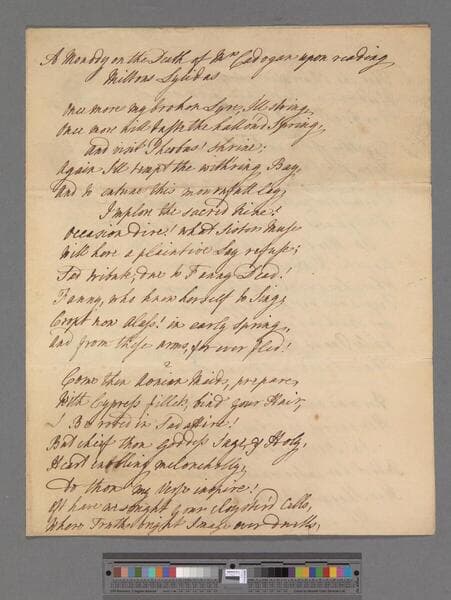 A Monody on the Death of Mrs Cadogan upon reading
Miltons Lycidas
Once more my broken Lyre, I'll string,
Once more will taste the hallow'd Spring,
And visit Phoebus' Shrine;
Again I'll tempt the with'ring Bay,
And to entune this mournfull Lay,
I implore the sacred Nine!
Occasion dire! what Sister Muse
Will here a plaintive Lay refuse;
Sad tribute, due to Fanny Dead!
Fanny, who knew herself to Sing,
Cropt now Alass! in early Spring,
And from these arms, for ever fled!
Come then Aonian Maids, prepare,
With Cypress fillets, bind your Hair,
Be rob'd in Sad attire!
But chief thou Goddess Sage, & Holy,
Heart enobling melancholly,
Do thou my Verse inspire!
Oft have we sought your cloyster'd Cells,
Where Truths bright Image ever dwells,